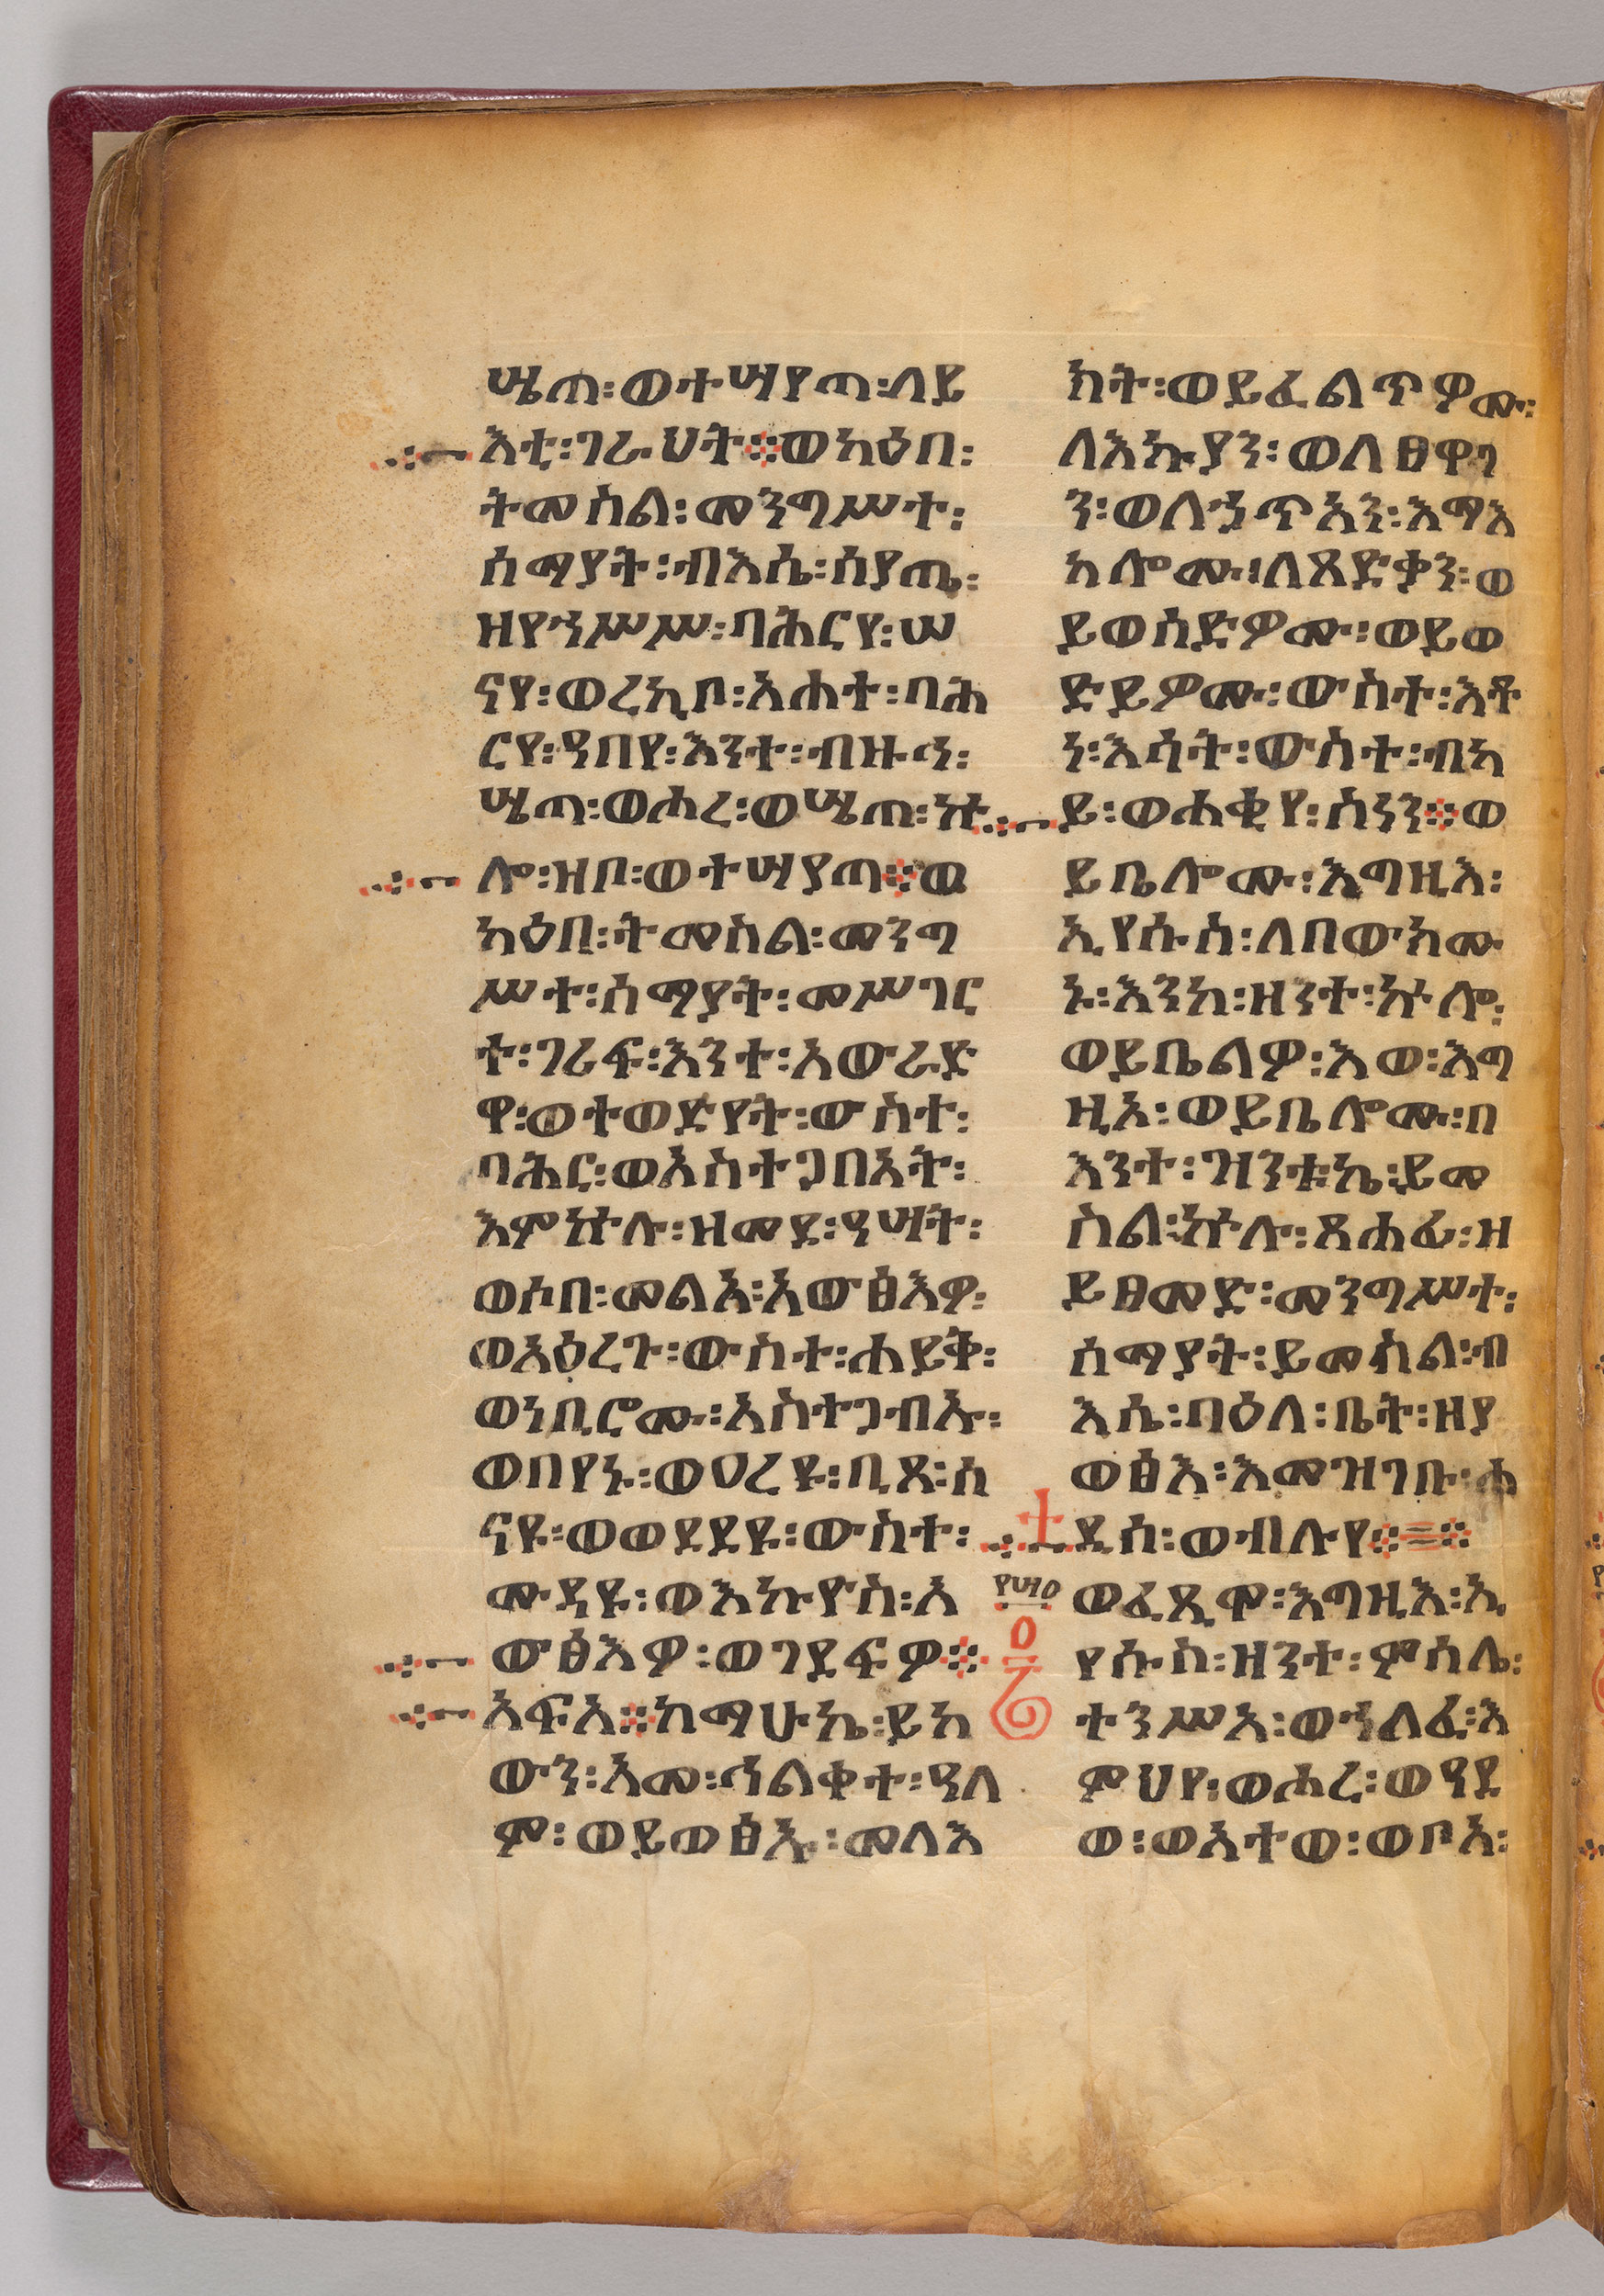 ሤጠ፡ወተሣየጣ፡ለይ
እቲ፡ገራህት፨ወካዕበ፡
ትመስል፡መንግሥተ፡
ሰማያት፡ብእሴ፡ሰያጤ፡
ዘየኀሥሥ፡ባሕርየ፡ሠ
ናየ፡ወረኪቦ፡አሐተ፡ባሕ
ርየ፡ዓበየ፡እንተ፡ብዙኅ፡
ሤጣ፡ወሐረ፡ወሤጠ፡ኵ
ሎ፡ዘቦ፡ወተሣያጣ፨ወ
ካዕበ፡ትመስል፡መንግ
ሥተ፡ሰማያት፡መሥገር
ተ፡ገሪፍ፡እንተ፡አውራድ
ዋ፡ወተወድየት፡ውስተ፡
ባሕር፡ወአስተጋበአት፡
እምኵሉ፡ዘመደ፡ዓሣት፡
ወሶበ፡መልአ፡አውፅእዎ፡
ወአዕረጉ፡ውስተ፡ሐይቅ፡
ወነቢሮሙ፡አስተጋብኡ፡
ወበየኑ፡ወኀረዩ፡ቢጸ፡ሰ
ናዩ፡ወወደደዩ፡ውስተ፡
ሙዳዩ፡ወእኩዮስ፡አ
ውፅእዎ፡ወገደፍዎ፨
አፍአ፨ከማሁኬ፡ይከ
ውን፡አመ፡ኅልቀተ፡ዓለ
ም፡ወይወፅኡ፡መላእ
ክት፡ወይፈልጥዎሙ፡
ለእኩያን፡ወለፀዋጋ
ን፡ወለኃጥአን፡እማእ
ከሎሙ፡ለጻድቃን፡ወ
ይወስድዎሙ፡ወይወ
ድይዎሙ፡ውስተ፡እቶ
ነ፡እሳት፡ውስተ፡ብካ
ይ፡ወሐቂየ፡ስነን፨ወ
ይቤሎሙ፡እግዚእ፡
ኢየሱስ፡ለበውከሙ
ኑ፡እንከ፡ዘንተ፡ኵሎ፡
ወይቤልዎ፡እወ፡እግ
ዚአ፡ወይቤሎሙ፡በ
እንተ፡ዝንቱኬ፡ይመ
ስል፡ኵሉ፡ጸሐፊ፡ዘ
ይፀመድ፡መንግሥተ፡
ሰማያት፡ይመስል፡ብ
እሴ፡ባዕለ፡ቤት፡ዘያ
ወፅእ፡እመዝገቡ፡ሐ
ዲሰ፡ወብሉየ፨=፨
ወፈጺሞ፡እግዚእ፡ኢ
የሱስ፡ዘንተ፡ምሳሌ፡
ተንሥአ፡ወኀለፈ፡እ
ምህየ፡ወሐረ፡ወዓደ
ወ፡ወአተወ፡ወቦአ፡